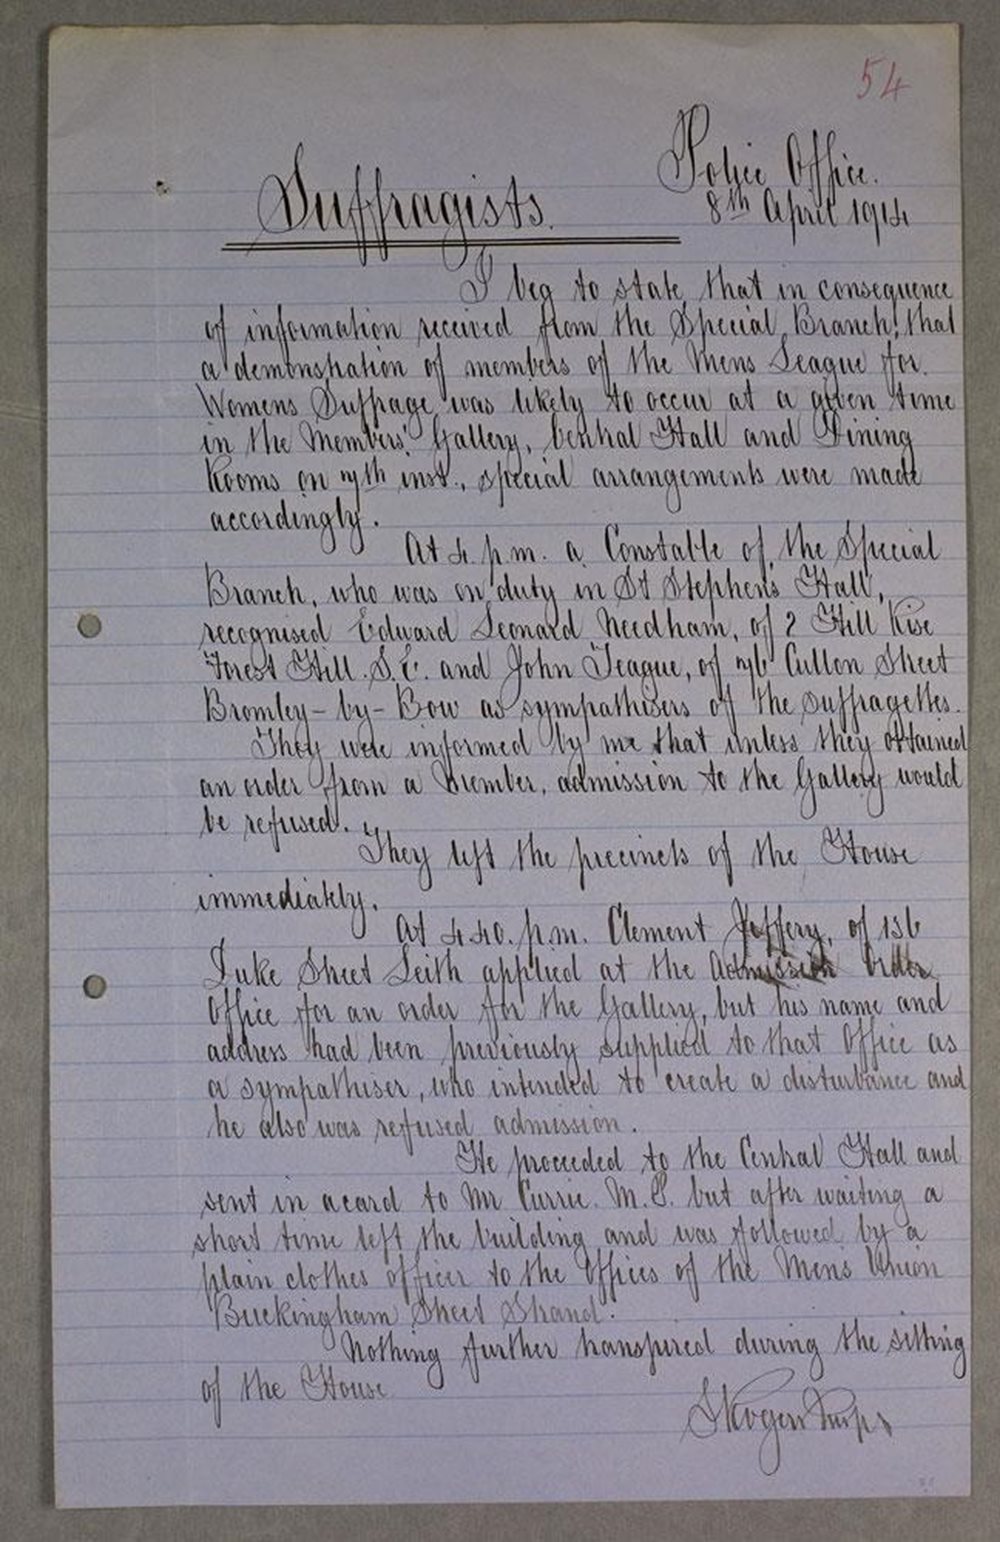 54
Police Office.
8th April 1914
Suffragists.
I beg to state, that in consequence
of information received from the Special Branch, that
a demonstration of members of the Mens League for
Womens Suffrage, was likely to occur at a given time
in the Members' Gallery, Central Hall and Dining
Rooms on 7th inst., special arrangements were made
accordingly.
At 4. p.m. a Constable of the Special
Branch, who was on duty in St Stephen's Hall,
recognised Edward Leonard Needham, of 2 Hill Rise
Forest Hill. S.E. and John Teague, of 76 Cullon Street
Bromley-by-Bow as sympathisers of the suffragettes.
They were informed by me that unless they obtained
an order from a Member, admission to the Gallery would
be refused.
They left the precincts of the House
immediately.
At 4.40. p.m. Clement Jeffery, of 136
Duke Street Leith applied at the Admission Order
Office for an order for the Gallery, but his name and
address had been previously supplied to that Office as
a sympathiser, who intended to create a disturbance and
he also was refused admission.
He proceeded to the Central Hall and
sent in a card to Mr Currie. M.P. but after waiting a
short time left the building and was followed by a
plain clothes officer to the Offices of the Men's Union
Buckingham Street Strand.
Nothing further transpired during the sitting
of the House